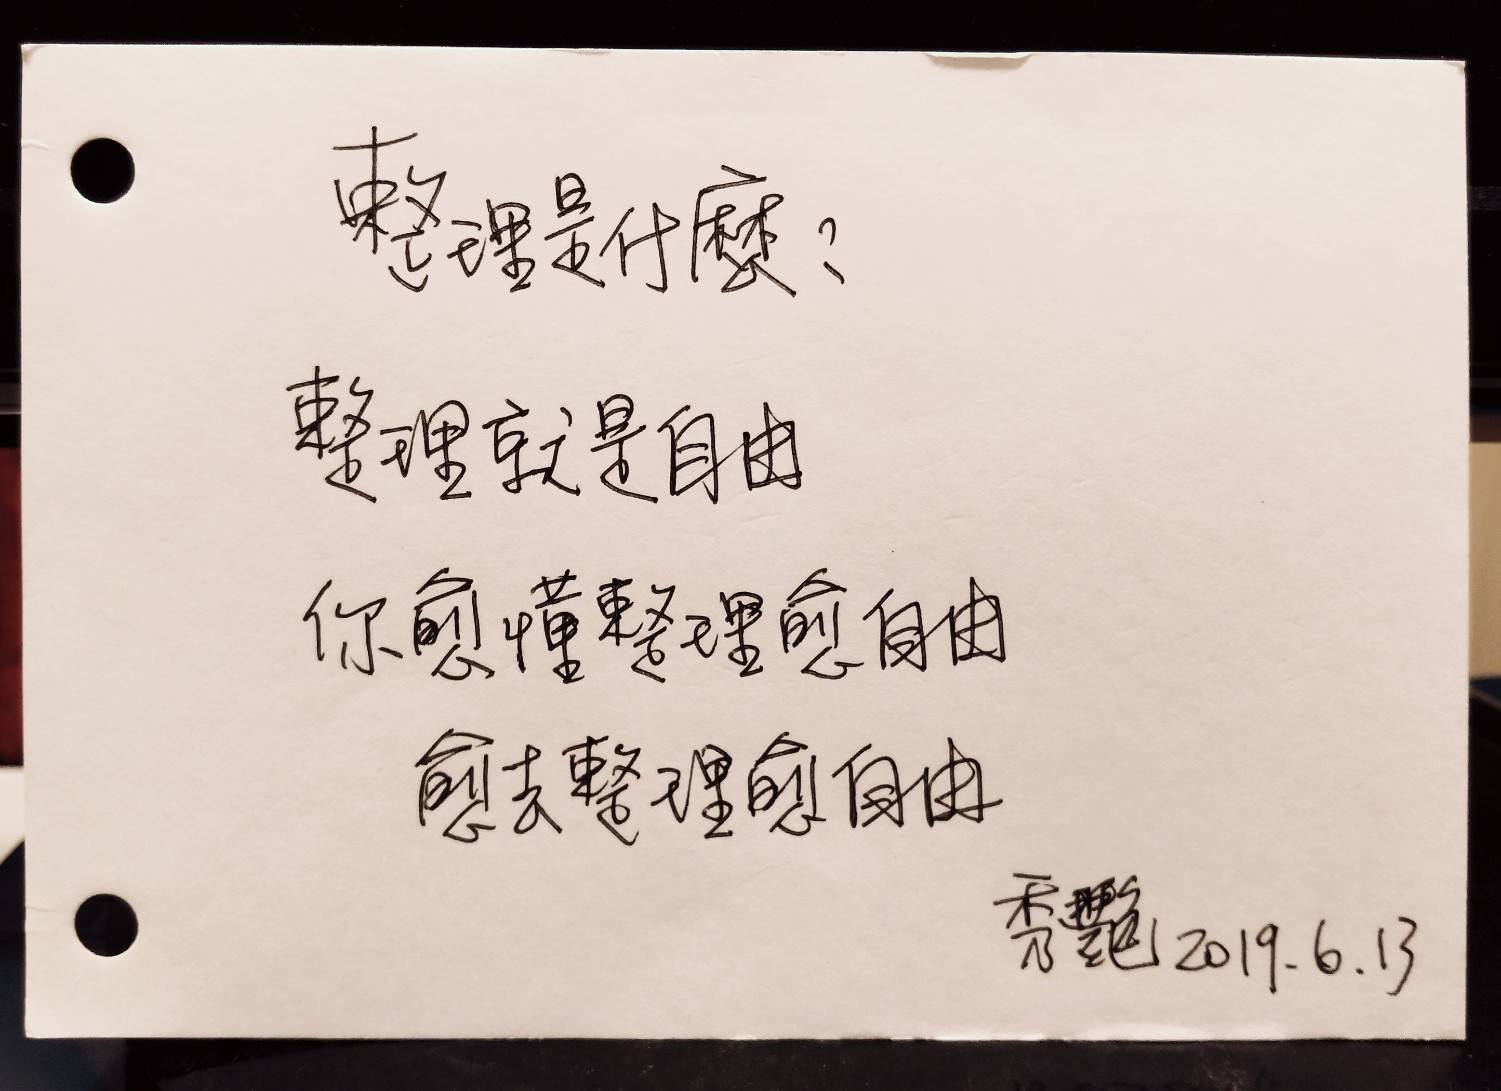 整理是什麼？
整理就是自由
你愈懂整理愈自由
愈去整理愈自由
秀艷 2019.6.13